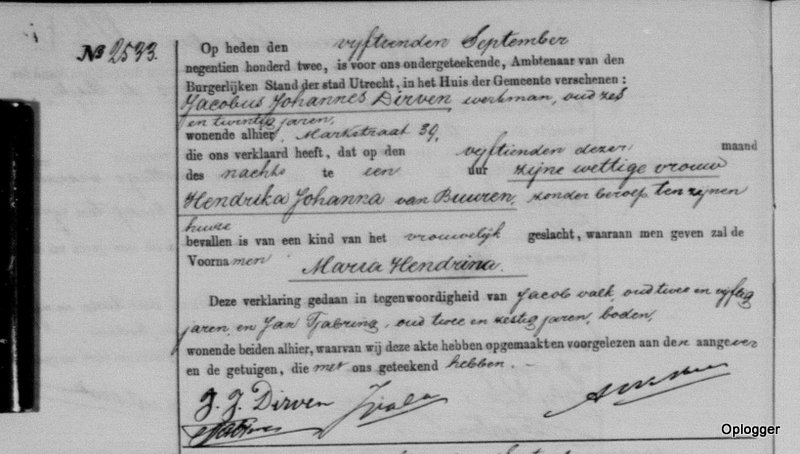 No 2533.
Op heden den vyftienden September
negentien honderd twee, is voor ons ondergeteekende, Ambtenaar van den
Burgerlijken Stand der stad Utrecht, in het Huis der Gemeente verschenen:
Jacobus Johannes Dirven, werkman, oud zes
en twintig jaren,
wonende alhier, Markstraat 39,
die ons verklaard heeft, dat op den vyftienden dezer maand
des nachts te een uur zijne wettige vrouw
Hendrika Johanna van Buuren, zonder beroep, ten zijnen
huize
bevallen is van een kind van het vrouwelijk geslacht, waaraan men geven zal de
Voornamen Maria Hendrina.
Deze verklaring gedaan in tegenwoordigheid van Jacob Valk, oud twee en vyftig
jaren, en Jan Tjabring, oud twee en zestig jaren, boden,
wonende beiden alhier, waarvan wij deze akte hebben opgemaakt en voorgelezen aan den aangever
en de getuigen, die met ons geteekend hebben.
J. J. Dirven
September
Oplogger